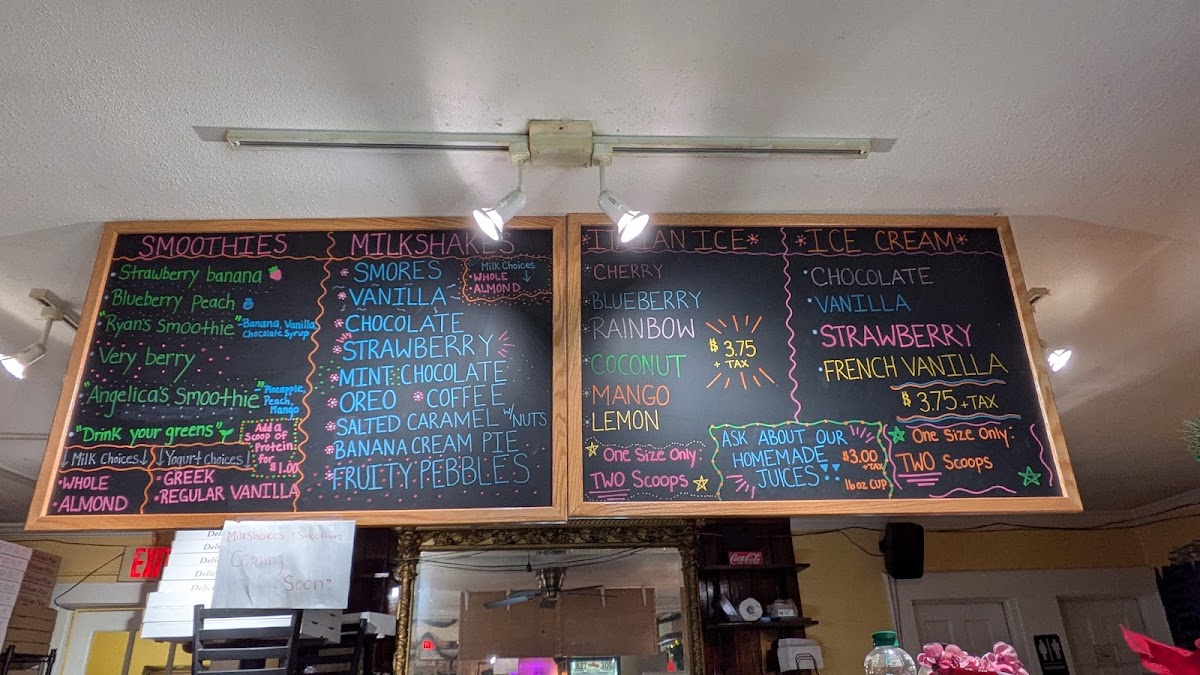 SMOOTHIES
Strawberry banana
Blueberry Peach
"Ryan's Smoothie" - Banana, Vanilla
Chocolate Syrup
Very berry
"Angelica's Smoothie" - Pineapple,
Peach,
Mango
"Drink your greens"
Add a
Scoop of
Protein
for
$1.00
↓ Milk Choices ↓
WHOLE
ALMOND
↓ Yogurt Choices ↓
GREEK
REGULAR VANILLA
MILKSHAKES
Milk Choices
WHOLE
ALMOND
SMORES
VANILLA
CHOCOLATE
STRAWBERRY
MINT CHOCOLATE
OREO * COFFEE
SALTED CARAMEL W/NUTS
BANANA CREAM PIE
FRUITY PEBBLES
*ITALIAN ICE*
CHERRY
BLUEBERRY
RAINBOW
COCONUT
MANGO
LEMON
$3.75
+ TAX
One Size Only:
TWO SCOOPS
ASK ABOUT OUR
HOMEMADE
JUICES
$3.00
+TAX
16 oz CUP
*ICE CREAM*
CHOCOLATE
VANILLA
STRAWBERRY
FRENCH VANILLA
$3.75 + TAX
One Size Only:
TWO SCOOPS
Milkshakes + Smoothies
Coming
Soon
EXIT
Coca-Cola